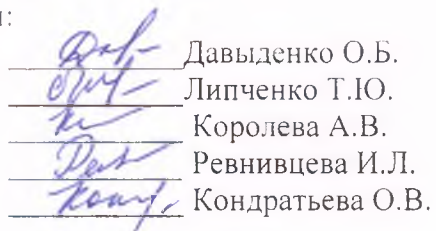 :
Давыденко О.Б.
Липченко Т.Ю.
Королева А.В.
Ревнивцева И.Л.
Кондратьева О.В.